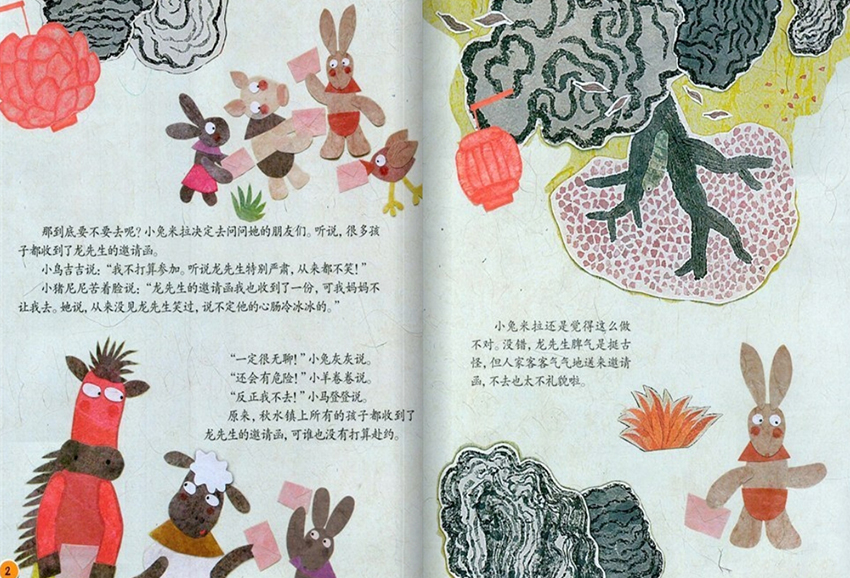 那到底要不要去呢？小兔米拉决定去问问她的朋友们。听说，很多孩
子都收到了龙先生的邀请函。
小鸟吉吉说：“我不打算参加。听说龙先生特别严肃，从来都不笑！”
小猪尼尼苦着脸说：“龙先生的邀请函我也收到了一份，可我妈妈不
让我去。她说，从来没见龙先生笑过，说不定他的心肠冷冰冰的。”
“一定很无聊！”小兔灰灰说。
“还会有危险！”小羊卷卷说。
“反正我不去！”小马登登说。
原来，秋水镇上所有的孩子都收到了
龙先生的邀请函，可谁也没有打算赴约。
2
小兔米拉还是觉得这么做
不对。没错，龙先生脾气是挺古
怪，但人家客客气气地送来邀请
函，不去也太不礼貌啦。